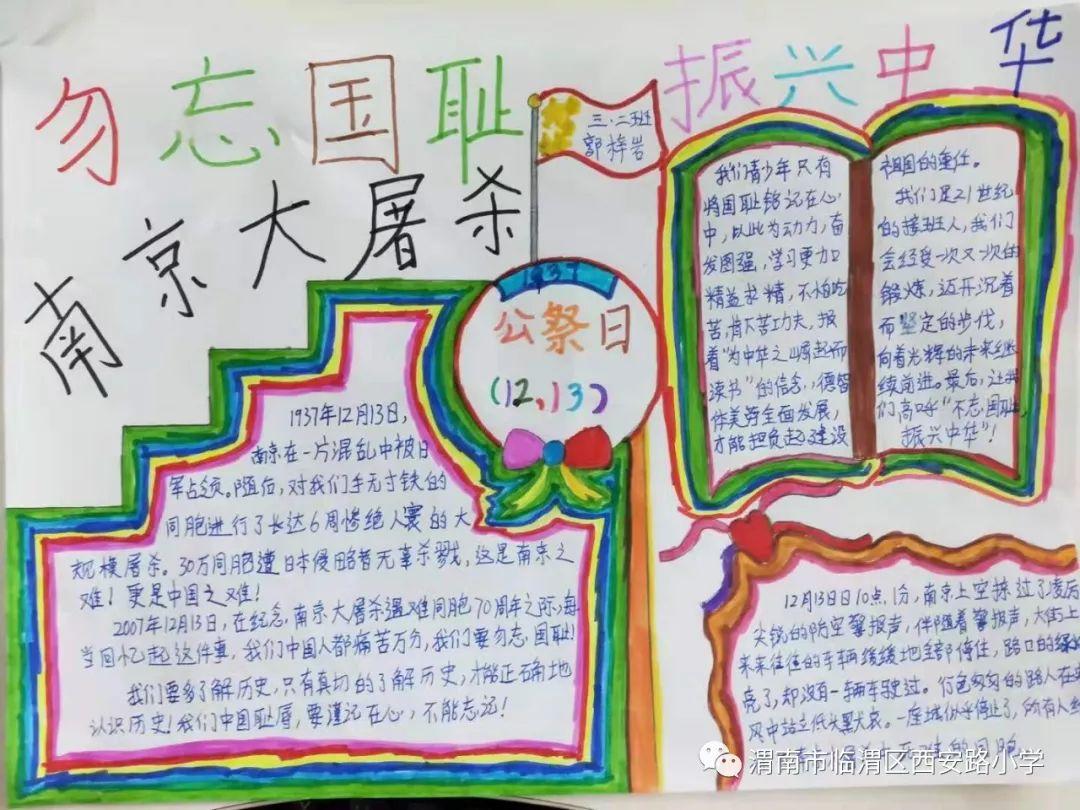 勿忘国耻 振兴中华
南京大屠杀
三·二班
郭梓岩
1937
公祭日
(12,13)
1937年12月13日,
南京在一片混乱中被日
军占领。随后,对我们手无寸铁的
同胞进行了长达6周惨绝人寰的大
规模屠杀。30万同胞遭日本侵略者无辜杀戮,这是南京之
难!更是中国之难!
2007年12月13日,在纪念南京大屠杀遇难同胞70周年之际,每
当回忆起这件事,我们中国人都痛苦万分,我们要勿忘国耻!
我们要多了解历史,只有真切的了解历史,才能正确地
认识历史!我们中国耻辱,要谨记在心,不能忘记!
我们青少年只有
将国耻铭记在心
中,以此为动力,奋
发图强,学习更加
精益求精,不怕吃
苦,肯下苦功夫,报
着“为中华之崛起而
读书”的信念,德智
体美劳全面发展,
才能担负起建设
祖国的重任。
我们是21世纪
的接班人,我们
会经受一次又一次的
锻炼,迈开沉着
而坚定的步伐,
向着光辉的未来继
续前进。最后,让我
们高呼“不忘国耻,
振兴中华”!
12月13日日10点1分,南京上空掠过了凌厉
尖锐的防空警报声,伴随着警报声,大街上
来来往往的车辆缓缓地全部停住,路口的绿
亮了,却没有一辆车驶过。行色匆匆的路人在
风中站立低头默哀。一座城似乎停止了,所有人
的同胞
渭南市临渭区西安路小学